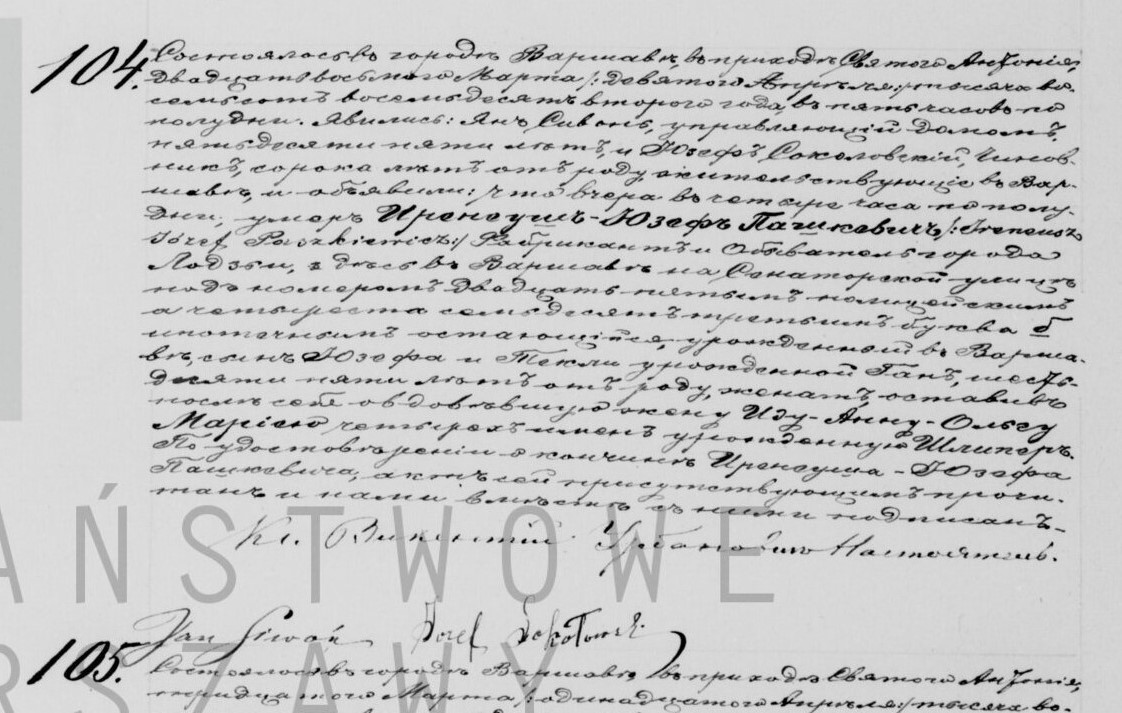 104.
Состоялось въ городѣ Варшавѣ, въ приходѣ Святого Антонія,
двадцать восьмого Марта /: девятого Апрѣля :/ тысяча во-
семьсотъ восемьдесятъ второго года, въ пять часовъ по
полудни. Явились: Янъ Сивонь, управляющій домомъ,
пятьдесяти пяти лѣтъ, и Юзефъ Соколовскій, Чинов-
никъ, сорока лѣтъ отъ роду, жительствующіе въ Вар-
шавѣ, и объявили: что вчера въ четыре часа по полу-
дни, умеръ Иренеушъ-Юзефъ Пашкевичъ /: Ireneusz
Józef Paszkiewicz :/ Фабрикантъ и Обыватель города
Лодзи, здѣсь въ Варшавѣ на Сенаторской улицѣ
подъ номеромъ двадцать пятымъ полицейскимъ
а четыреста семьдесятъ третьимъ буква б
ипотечнымъ остающійся, урожденный въ Варша-
вѣ, сынъ Юзефа и Текли урожденной Ганъ, шесть-
десяти пяти лѣтъ отъ роду, женатъ, оставивъ
послѣ себя овдовѣвшую жену Иду-Анну-Ольгу
Марію четырехъ именъ урожденную Шлиперъ.
По удостовѣреніи о кончинѣ Иренеуша-Юзефа
Пашкевича, актъ сей присутствующимъ прочи-
танъ и нами вмѣстѣ съ ними подписанъ.
Кс. Викентій Урбановичъ Настоятель.
Jan Siwoń Józef Sokołowski
105.
Состоялось въ городѣ Варшавѣ, въ приходѣ Святого Антонія,
тридцатого Марта /: одинадцатого Апрѣля :/ тысяча во-
AŃSTWOWE
RSZAWY